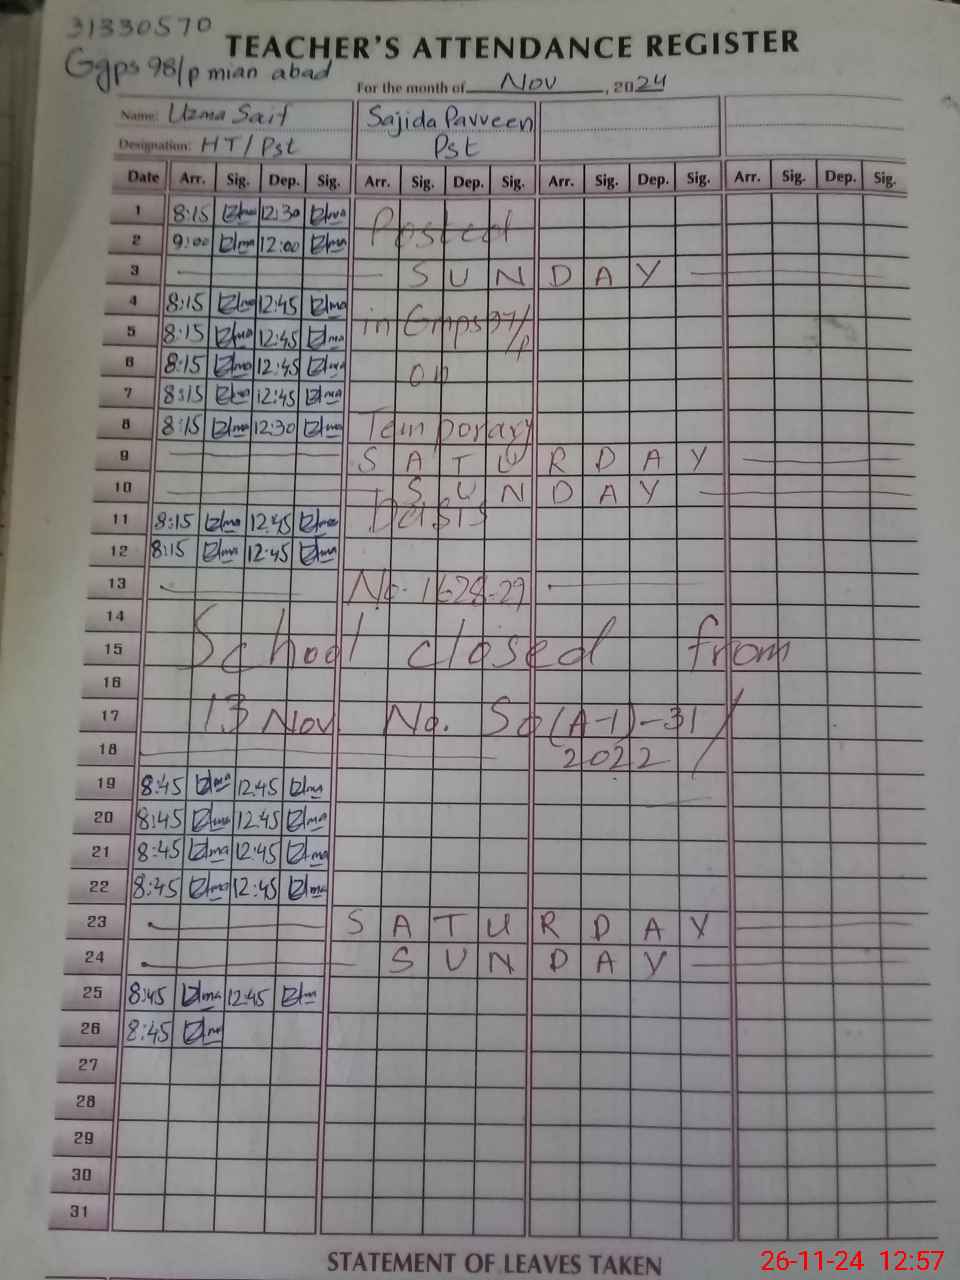 31330570
TEACHER'S ATTENDANCE REGISTER
Ggps 98/p mian abad
For the month of Nov, 2024
Name: Uzma Saif Sajida Parveen
Designation: HT/Pst Pst
Date Arr. Sig. Dep. Sig. Arr. Sig. Dep. Sig. Arr. Sig. Dep. Sig. Arr. Sig. Dep. Sig.
1 8:15 Uzma 12:30 Uzma Posted
2 9:00 Uzma 12:00 Uzma
3 SUNDAY
4 8:15 Uzma 12:45 Uzma
5 8:15 Uzma 12:45 Uzma in Gmps 97/p
6 8:15 Uzma 12:45 Uzma on
7 8:15 Uzma 12:45 Uzma
8 8:15 Uzma 12:30 Uzma Temporary
9 SATURDAY
10 SUNDAY
11 8:15 Uzma 12:45 Uzma Basis
12 8:15 Uzma 12:45 Uzma
13 No. 1628-29
14
15 School closed from
16
17 13 Nov. No. So (A-1)-31/
18 2022
19 8:45 Uzma 12:45 Uzma
20 8:45 Uzma 12:45 Uzma
21 8:45 Uzma 12:45 Uzma
22 8:45 Uzma 12:45 Uzma
23 SATURDAY
24 SUNDAY
25 8:45 Uzma 12:45 Uzma
26 8:45 Uzma
27
28
29
30
31
STATEMENT OF LEAVES TAKEN
26-11-24 12:57